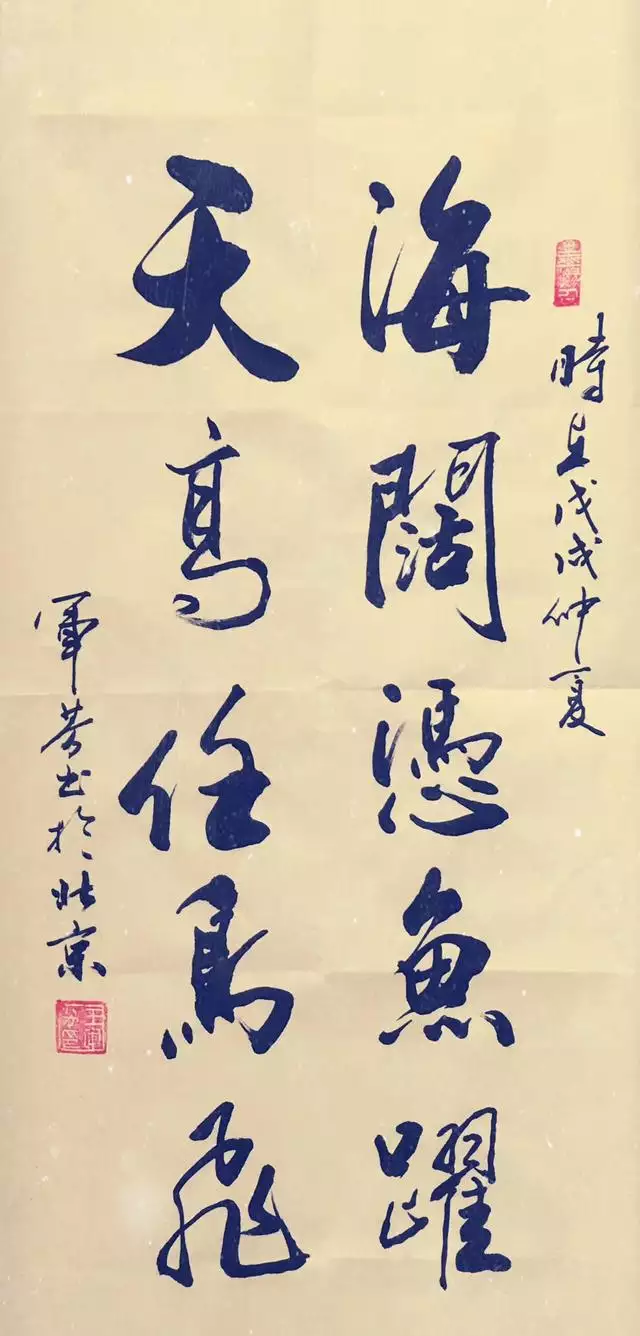 時在戊戌仲夏
海闊憑魚躍
天高任鳥飛
軍芳书於北京